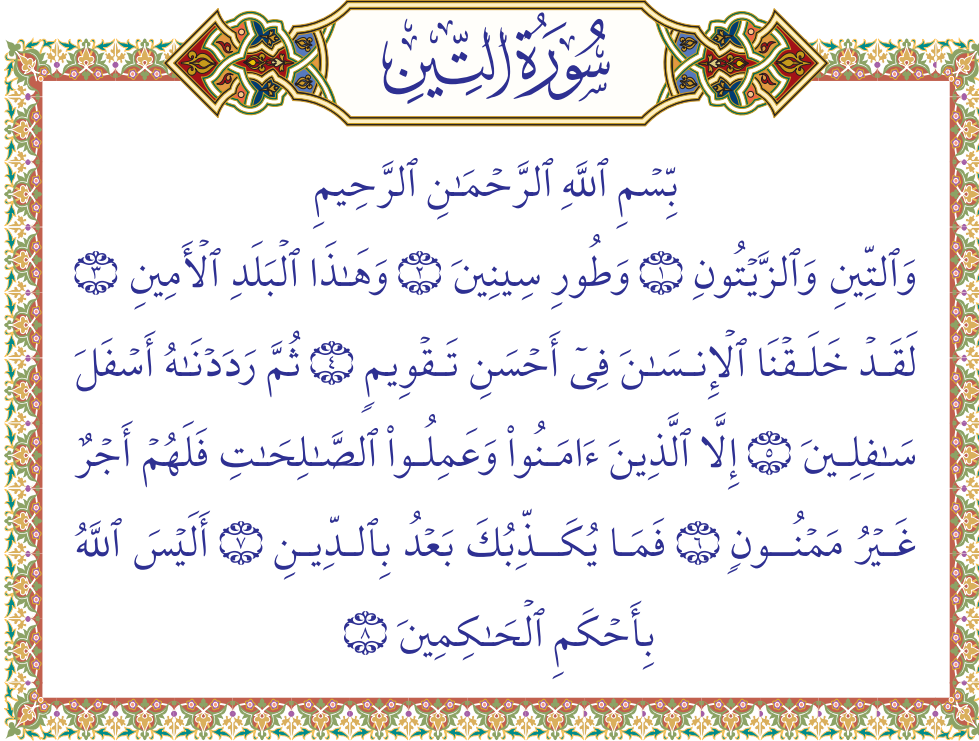 سُورَةُ التِّينِ
بِّسْمِ ٱللَّهِ ٱلرَّحْمَـٰنِ ٱلرَّحِيمِ
وَٱلتِّينِ وَٱلزَّيْتُونِ ﴿١﴾ وَطُورِ سِينِينَ ﴿٢﴾ وَهَـٰذَا ٱلْبَلَدِ ٱلْأَمِينِ ﴿٣﴾
لَقَدْ خَلَقْنَا ٱلْإِنسَـٰنَ فِىٓ أَحْسَنِ تَقْوِيمٍ ﴿٤﴾ ثُمَّ رَدَدْنَـٰهُ أَسْفَلَ
سَـٰفِلِينَ ﴿٥﴾ إِلَّا ٱلَّذِينَ ءَامَنُوا۟ وَعَمِلُوا۟ ٱلصَّـٰلِحَـٰتِ فَلَهُمْ أَجْرٌ
غَيْرُ مَمْنُونٍ ﴿٦﴾ فَمَا يُكَذِّبُكَ بَعْدُ بِٱلدِّينِ ﴿٧﴾ أَلَيْسَ ٱللَّهُ
بِأَحْكَمِ ٱلْحَـٰكِمِينَ ﴿٨﴾